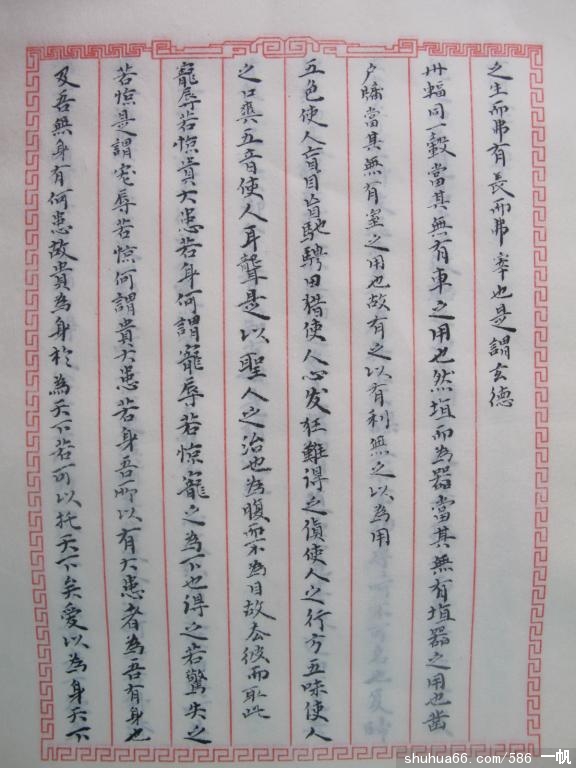 之生而弗有長而弗宰也是謂玄德
卅輻同一轂當其無有車之用也然埴而為器當其無有埴器之用也凿
户牖當其無有室之用也故有之以有利無之以為用
五色使人盲目盲馳騁田猎使人心发狂難得之貨使人之行方五味使人
之口爽五音使人耳聾是以聖人之治也為腹而不為目故去彼而取此
寵辱若惊貴大患若身何謂寵辱若惊寵之為下也得之若驚失之
若惊是謂宠辱若惊何謂貴大患若身吾所以有大患者為吾有身也
及吾無身有何患故貴為身於為天下若可以托天下矣愛以為身天下
shuhua66.com/586 一帆